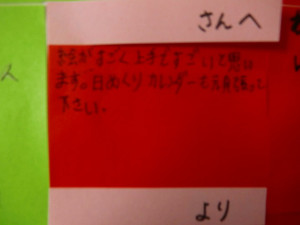 さんへ
絵がすごく上手ですごいと思い
ます。日めくりカレンダーも頑張って
下さい。
より
人